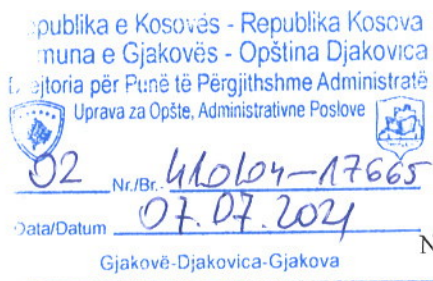 epublika e Kosovës - Republika Kosova
muna e Gjakovës - Opština Djakovica
ejtoria për Punë të Përgjithshme Administratë
Uprava za Opšte, Administrativne Poslove
02 Nr./Br. 410/04-17665
Data/Datum 07.07.2021
N
Gjakovë-Djakovica-Gjakova